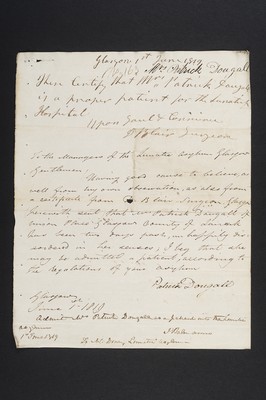 Glasgow 1st June 1819
Mrs Patrick Dougall
These Certify that Mrs Patrick Dougall
is a proper patient for the Lunatick
Hospital
Upon Saul & Consience
Blair Surgeon
To the Managers of the Lunatic asylum Glasgow
Gentlemen
Having good cause to believe, as
well from my own observation, as also from
a certificate from Blair Surgeon Glasgow
herewith sent that Mrs Patrick Dougall of
Union Place Glasgow County of Lanark
has been two days past, unhappily dis
ordered in her senses, I beg that she
may be admitted a patient, according to
the regulations of your asylum
Patrick Dougall
Glasgow
June 1st 1819
Admit Mrs Patrick Dougall as a patient into the Lunatic
asylum
1st June 1819
To Mr Drury Lunatic asylum